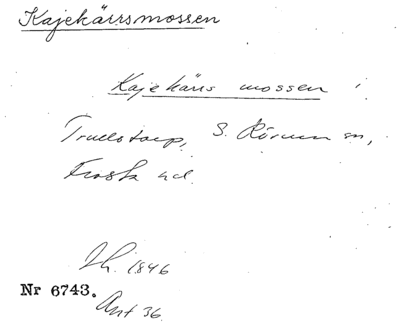 Kajekärrsmossen
Kajekärrs mossen i
Trulstorp, S. Rörum sn,
Frosta hd.
Jh. 1846
Nr 6743.
Ant 36.